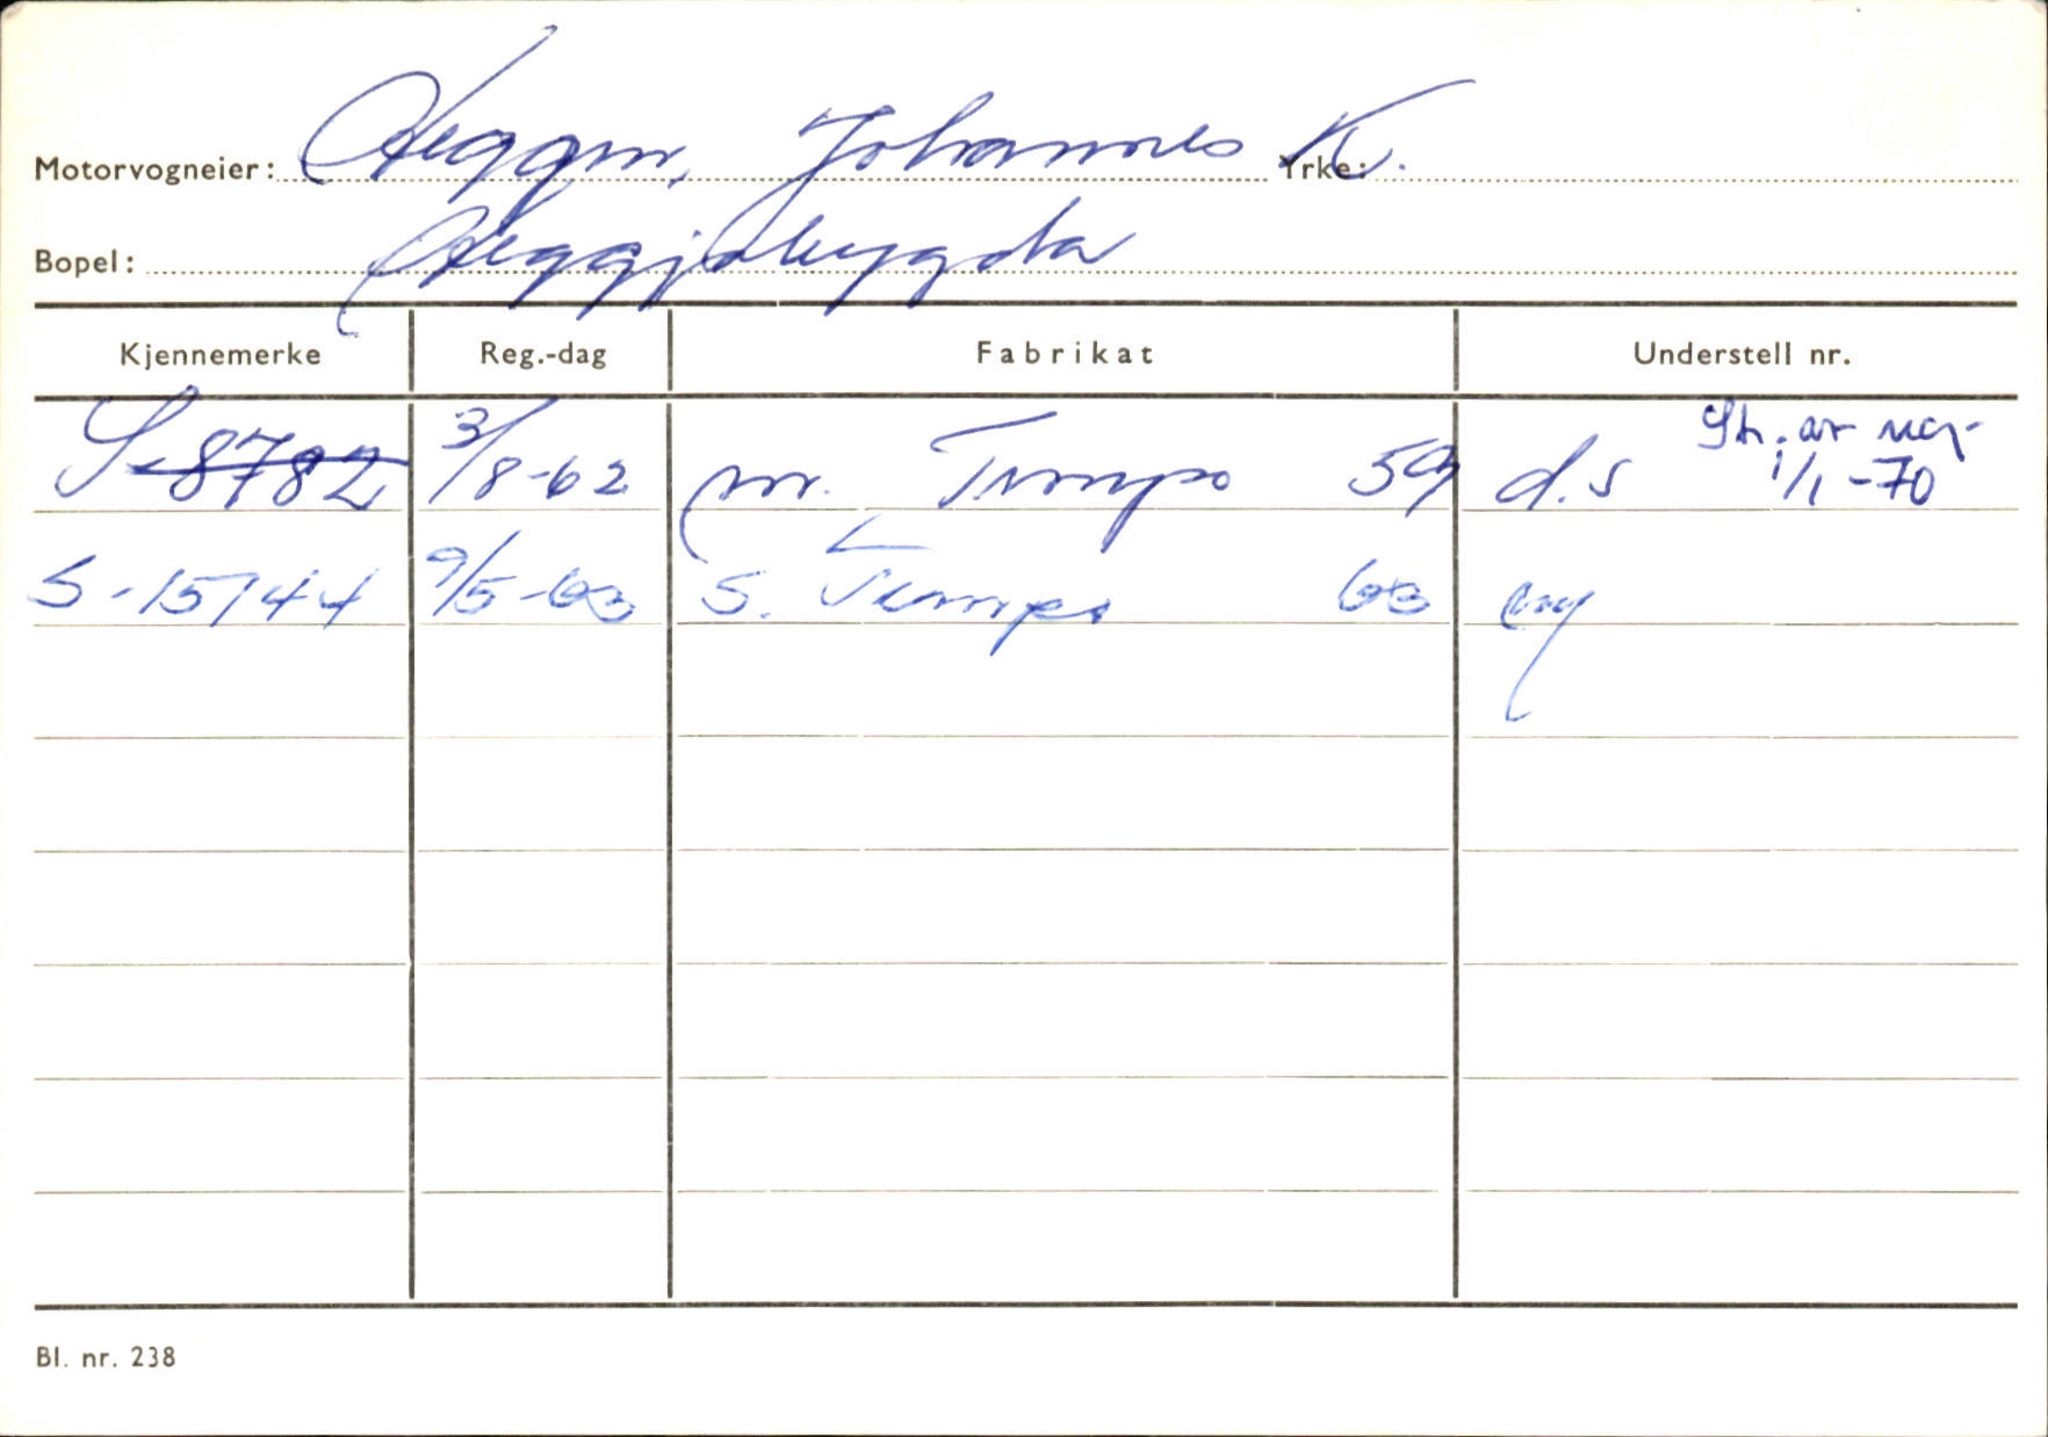 Motorvogneier: Heggen, Johannes K. Yrke:
Bopel: Heggjabygda
Kjennemerke Reg.-dag Fabrikat Understell nr.
S-8782 3/8-62 m. Tempo 59 d.s Str. av reg. 1/1-70
S-15744 9/5-63 S. Tempo 63 ny
Bl. nr. 238